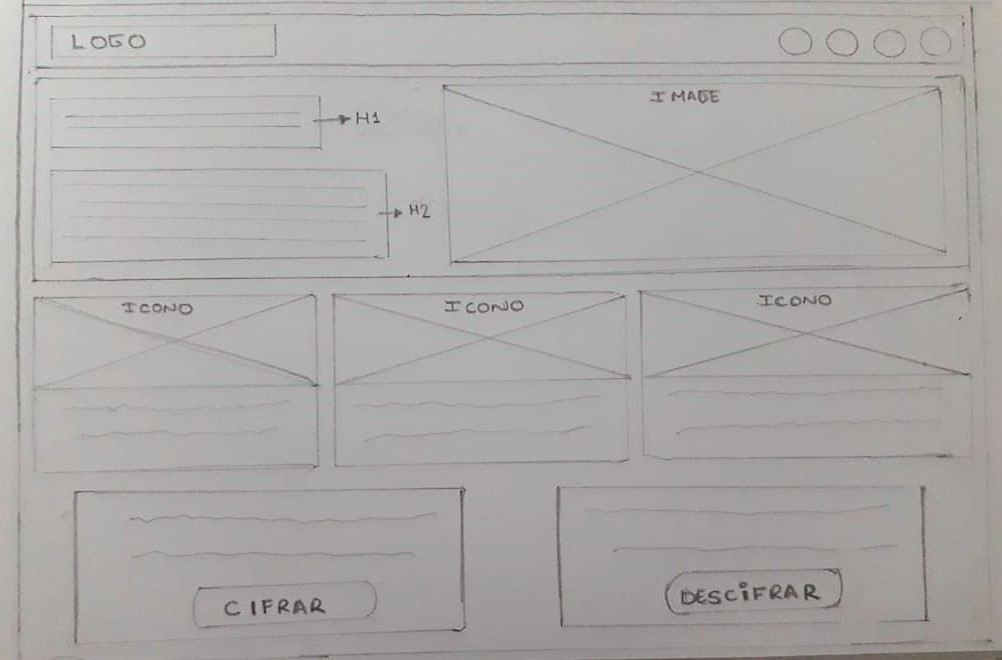 LOGO
IMAGE
H1
H2
ICONO
ICONO
ICONO
CIFRAR
DESCIFRAR